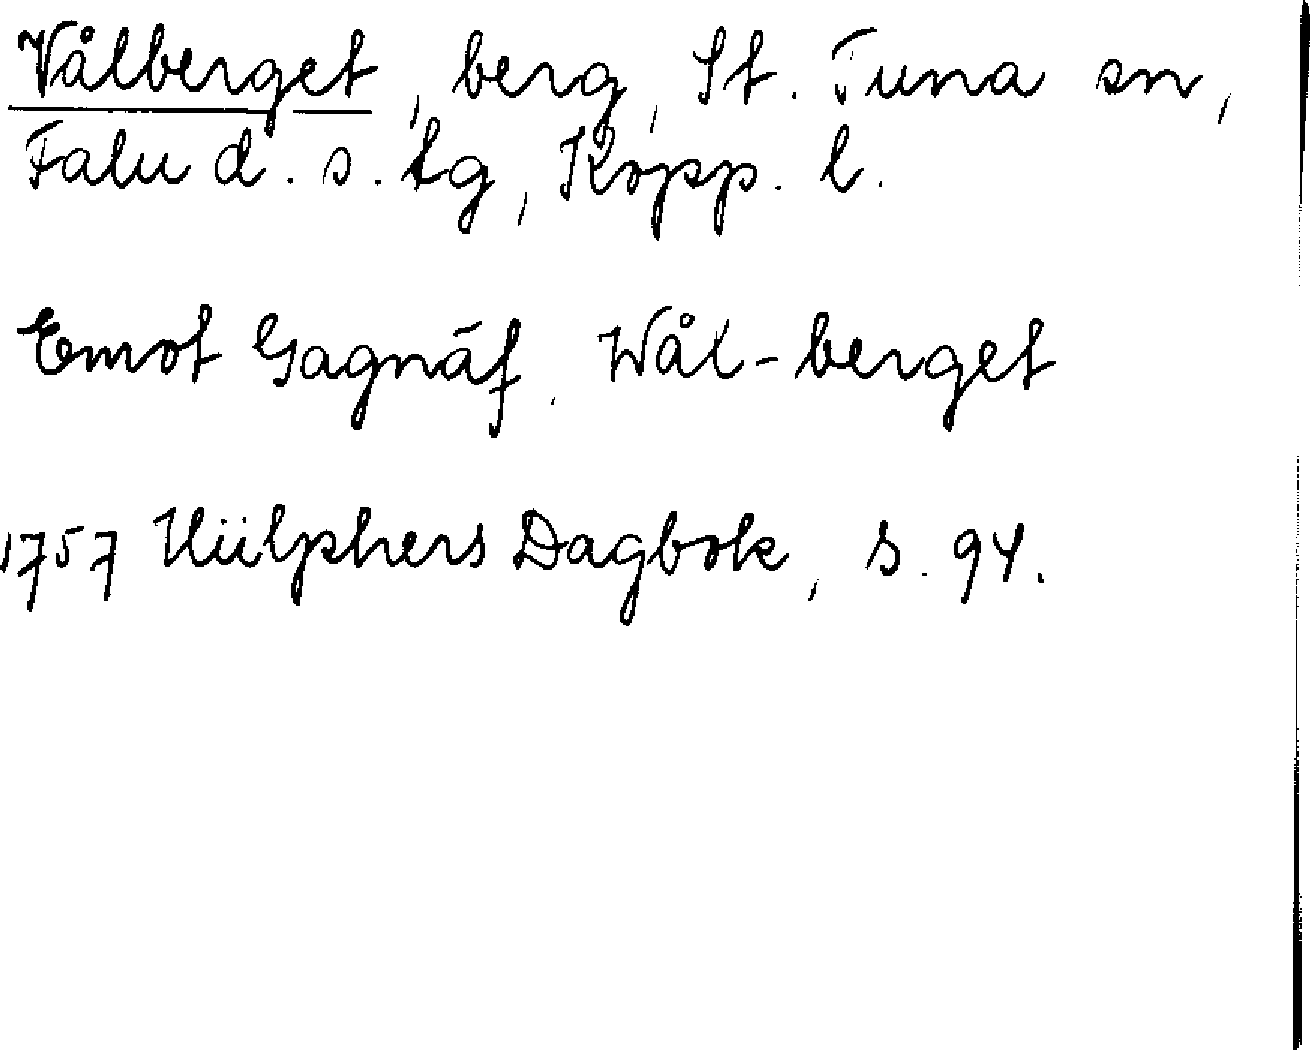 Vålberget, berg, St. Tuna sn,
Falu d. s. tg, Kopp. l.
Emot Gagnäf. Wål-berget
1757 Hülphers Dagbok, s. 94.